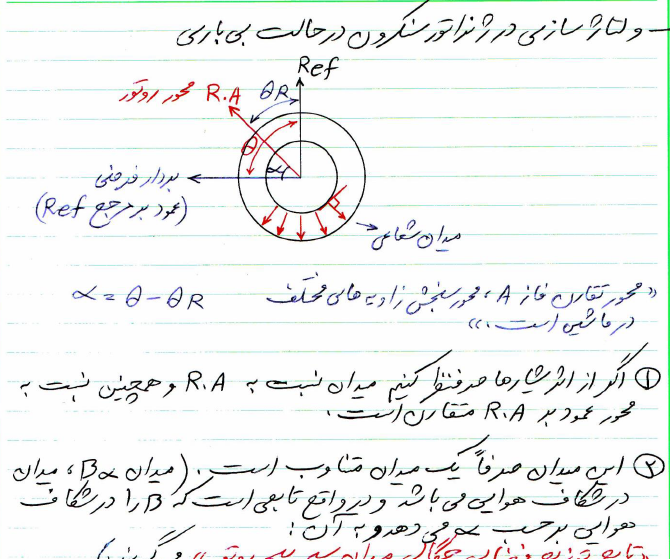 - ولتاژ سازی در ژنراتور سنکرون در حالت بی باری
Ref
θR
R.A محور روتور
θ
α
بردار فرضی
(عمود بر مرجع Ref)
میدان شعاعی
«محور تقارن فاز A، محور سنجش زاویه های مختلف
در ماشین است.»
α = θ - θR
① اگر از اثر شیارها صرفنظر کنیم میدان نسبت به R.A و همچنین نسبت به
محور عمود بر R.A متقارن است.
② این میدان صرفاً یک میدان متناوب است. (میدان Bα، میدان
در شکاف هوایی می باشد و در واقع تابعی است که B را در شکاف
هوایی بر حسب α می دهد و به آن: